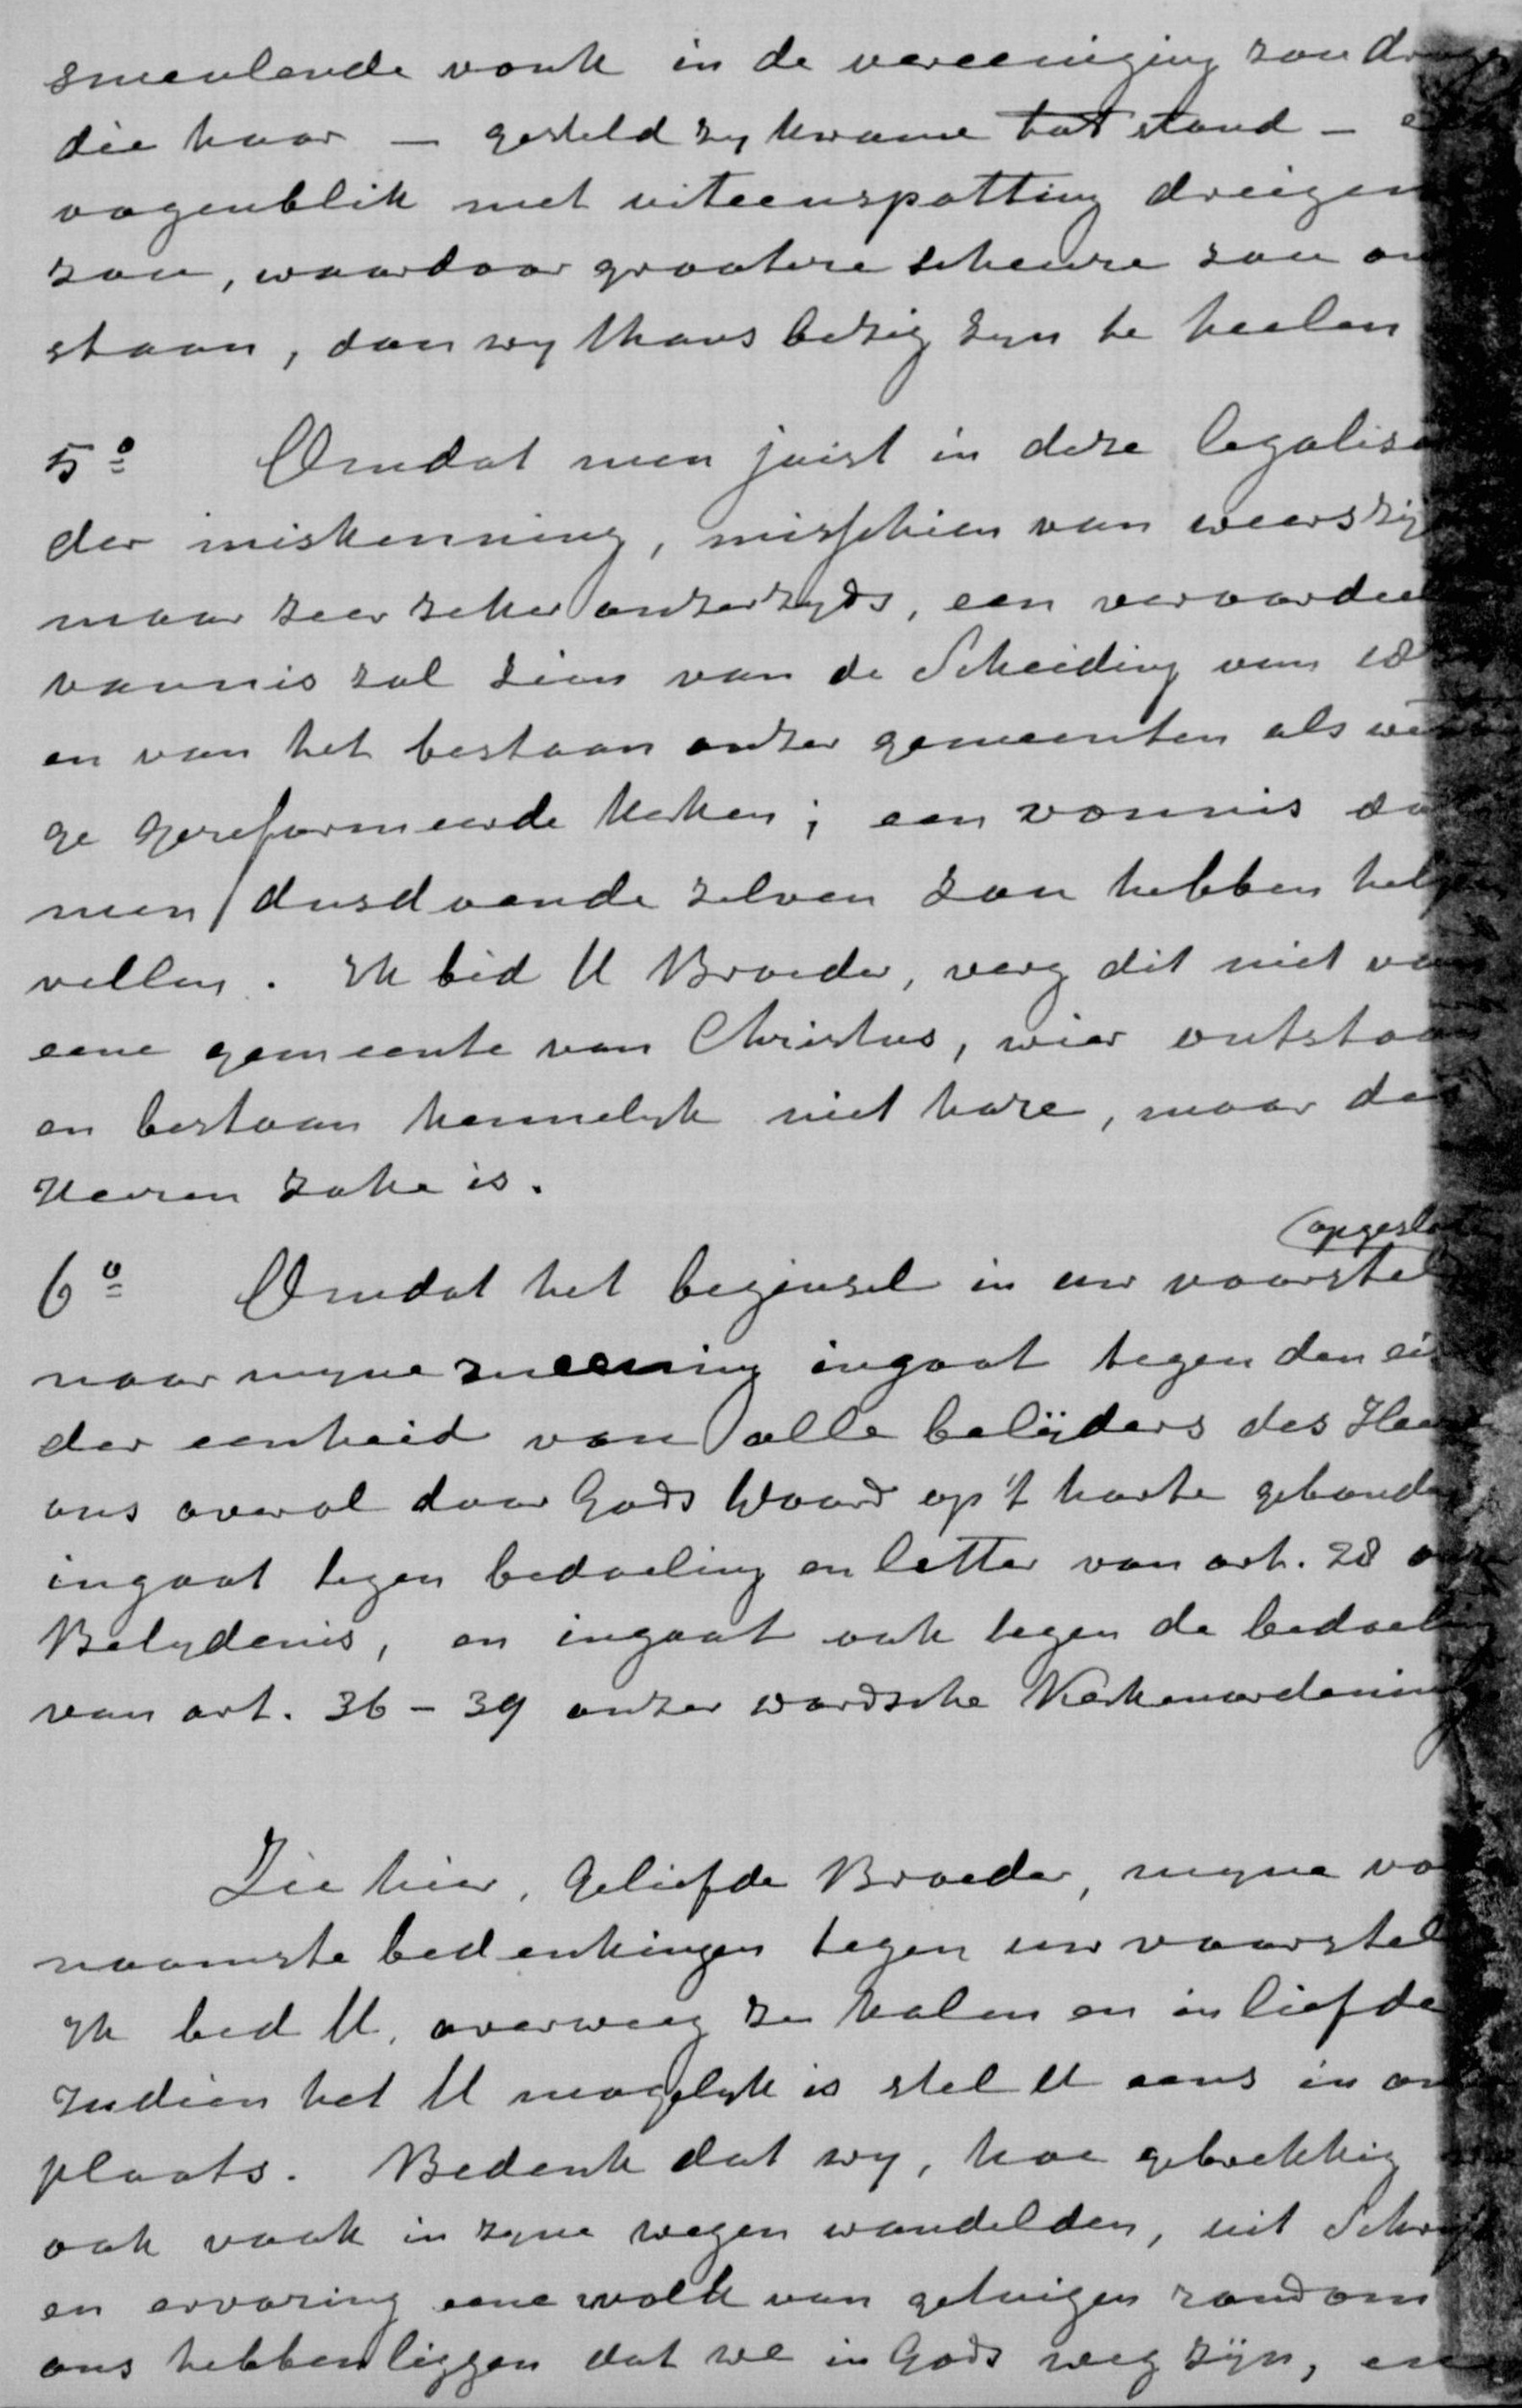 smeulende vonk in de vereeniging zou
die haar — gesteld zij kwame tot stand —
oogenblik met uiteenspatting dreigen
zou, waardoor grootere scheure zou
staan, dan wy thans bezig zyn te heelen
5º Omdat men juist in deze
der miskenning, misschien van
maar zeer zeker onzerzyds, een
vonnis zal zien van de Scheiding van
en van het bestaan onzer gemeenten als
ge Gereformeerde Kerken; een vonnis
men dusdoende zelven zou hebben
vellen. Ik bid U Broeder, verg dit niet van
eene gemeente van Christus, wier
en bestaan kennelyk niet hare, maar des
Heeren zake is.
6º Omdat het beginsel in uw voorstel
naar myne meening ingaat tegen den
der eenheid van alle belijders des
ons overal door Gods Woord op 't harte
ingaat tegen bedoeling en letter van art. 28
Belydenis, en ingaat ook tegen de bedoeling
van art. 36 – 39 onzer Kerkenordening
Zie hier, Geliefde Broeder, myne
naamste bedenkingen tegen uw voorstel
Ik bid U, overweeg ze kalm en in liefde
Indien het U mogelyk is stel U eens in
plaats. Bedenk dat wy, hoe gebrekkig
ook vaak in zyne wegen wandelden, uit
en ervaring eene wolk van getuigen rondom
ons hebben liggen dat we in Gods weg zijn,